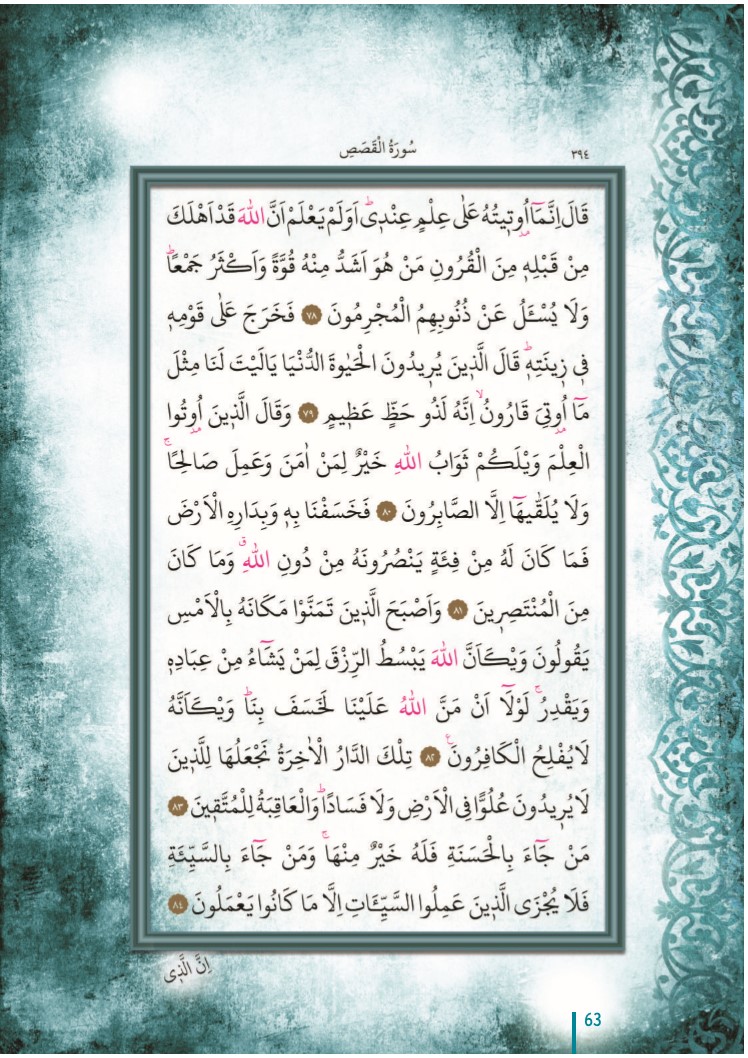 سُورَةُ الْقَصَصِ ٣٩٤
قَالَ اِنَّمَٓا اُو۫ت۪يتُهُ عَلٰى عِلْمٍ عِنْد۪يۜ اَوَلَمْ يَعْلَمْ اَنَّ اللّٰهَ قَدْ اَهْلَكَ
مِنْ قَبْلِه۪ مِنَ الْقُرُونِ مَنْ هُوَ اَشَدُّ مِنْهُ قُوَّةً وَاَكْثَرُ جَمْعًاۜ
وَلَا يُسْـَٔلُ عَنْ ذُنُوبِهِمُ الْمُجْرِمُونَ ﴿٧٨﴾ فَخَرَجَ عَلٰى قَوْمِه۪
ف۪ي ز۪ينَتِه۪ۜ قَالَ الَّذ۪ينَ يُر۪يدُونَ الْحَيٰوةَ الدُّنْيَا يَالَيْتَ لَنَا مِثْلَ
مَٓا اُو۫تِيَ قَارُونُۙ اِنَّهُ لَذُو حَظٍّ عَظ۪يمٍ ﴿٧٩﴾ وَقَالَ الَّذ۪ينَ اُو۫تُوا
الْعِلْمَ وَيْلَكُمْ ثَوَابُ اللّٰهِ خَيْرٌ لِمَنْ اٰمَنَ وَعَمِلَ صَالِحًاۚ
وَلَا يُلَقّٰيهَٓا اِلَّا الصَّابِرُونَ ﴿٨٠﴾ فَخَسَفْنَا بِه۪ وَبِدَارِهِ الْاَرْضَ
فَمَا كَانَ لَهُ مِنْ فِئَةٍ يَنْصُرُونَهُ مِنْ دُونِ اللّٰهِۗ وَمَا كَانَ
مِنَ الْمُنْتَصِر۪ينَ ﴿٨١﴾ وَاَصْبَحَ الَّذ۪ينَ تَمَنَّوْا مَكَانَهُ بِالْاَمْسِ
يَقُولُونَ وَيْكَاَنَّ اللّٰهَ يَبْسُطُ الرِّزْقَ لِمَنْ يَشَٓاءُ مِنْ عِبَادِه۪
وَيَقْدِرُۚ لَوْلَٓا اَنْ مَنَّ اللّٰهُ عَلَيْنَا لَخَسَفَ بِنَاۜ وَيْكَاَنَّهُ
لَا يُفْلِحُ الْكَافِرُونَ۟ ﴿٨٢﴾ تِلْكَ الدَّارُ الْاٰخِرَةُ نَجْعَلُهَا لِلَّذ۪ينَ
لَا يُر۪يدُونَ عُلُوًّا فِي الْاَرْضِ وَلَا فَسَادًاۜ وَالْعَاقِبَةُ لِلْمُتَّق۪ينَ ﴿٨٣﴾
مَنْ جَٓاءَ بِالْحَسَنَةِ فَلَهُ خَيْرٌ مِنْهَاۚ وَمَنْ جَٓاءَ بِالسَّيِّئَةِ
فَلَا يُجْزَى الَّذ۪ينَ عَمِلُوا السَّيِّـَٔاتِ اِلَّا مَا كَانُوا يَعْمَلُونَ ﴿٨٤﴾
اِنَّ الَّذ۪ي
63